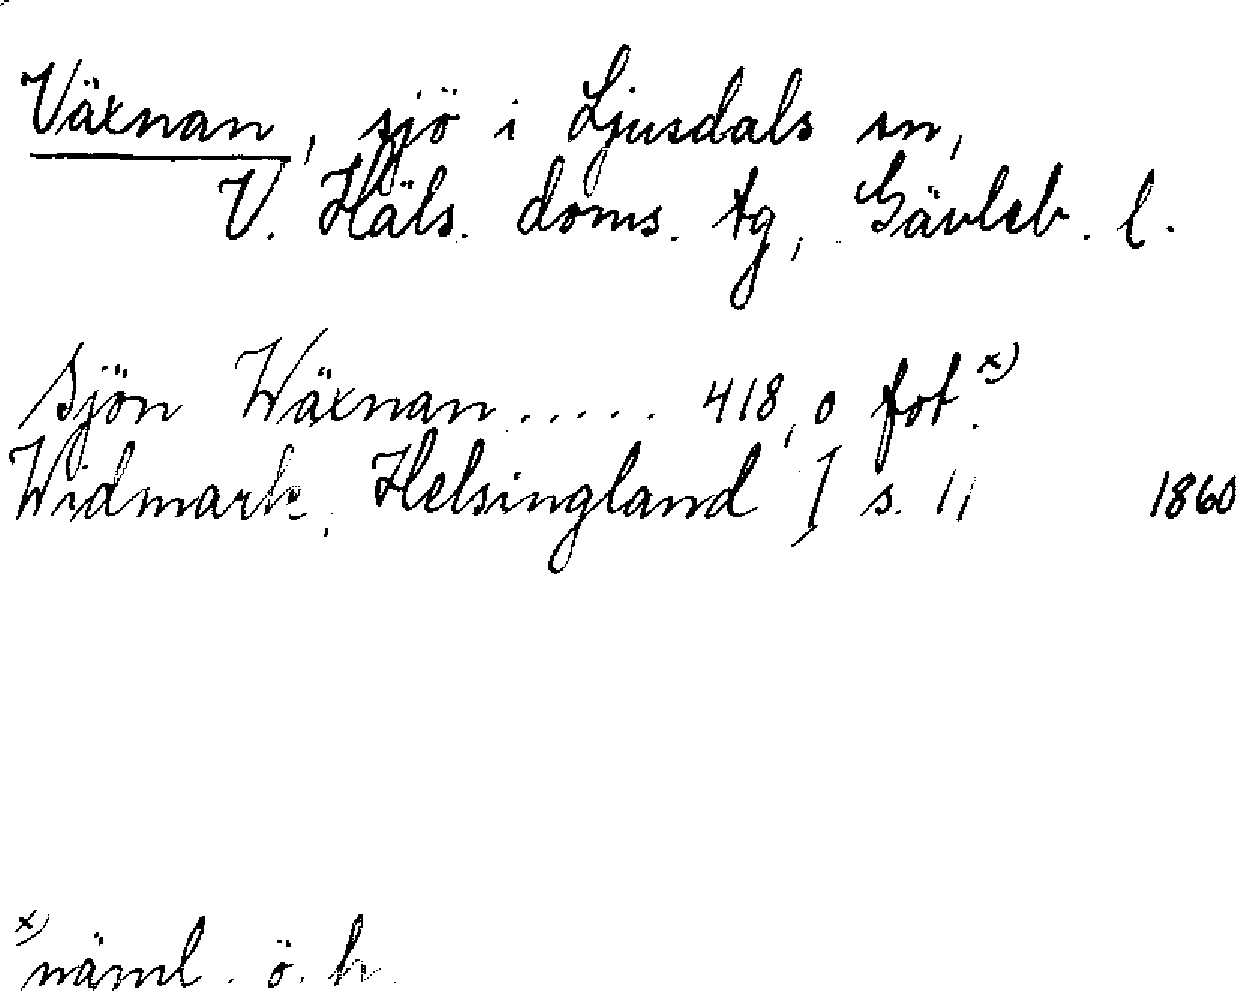 Växnan, sjö i Ljusdals sn,
V. Häls. doms. tg, Gävleb. l.
Sjön Wäxnan ..... 418,0 fot.x)
Widmark, Helsingland I s. 11 1860
x) näml. ö. h.